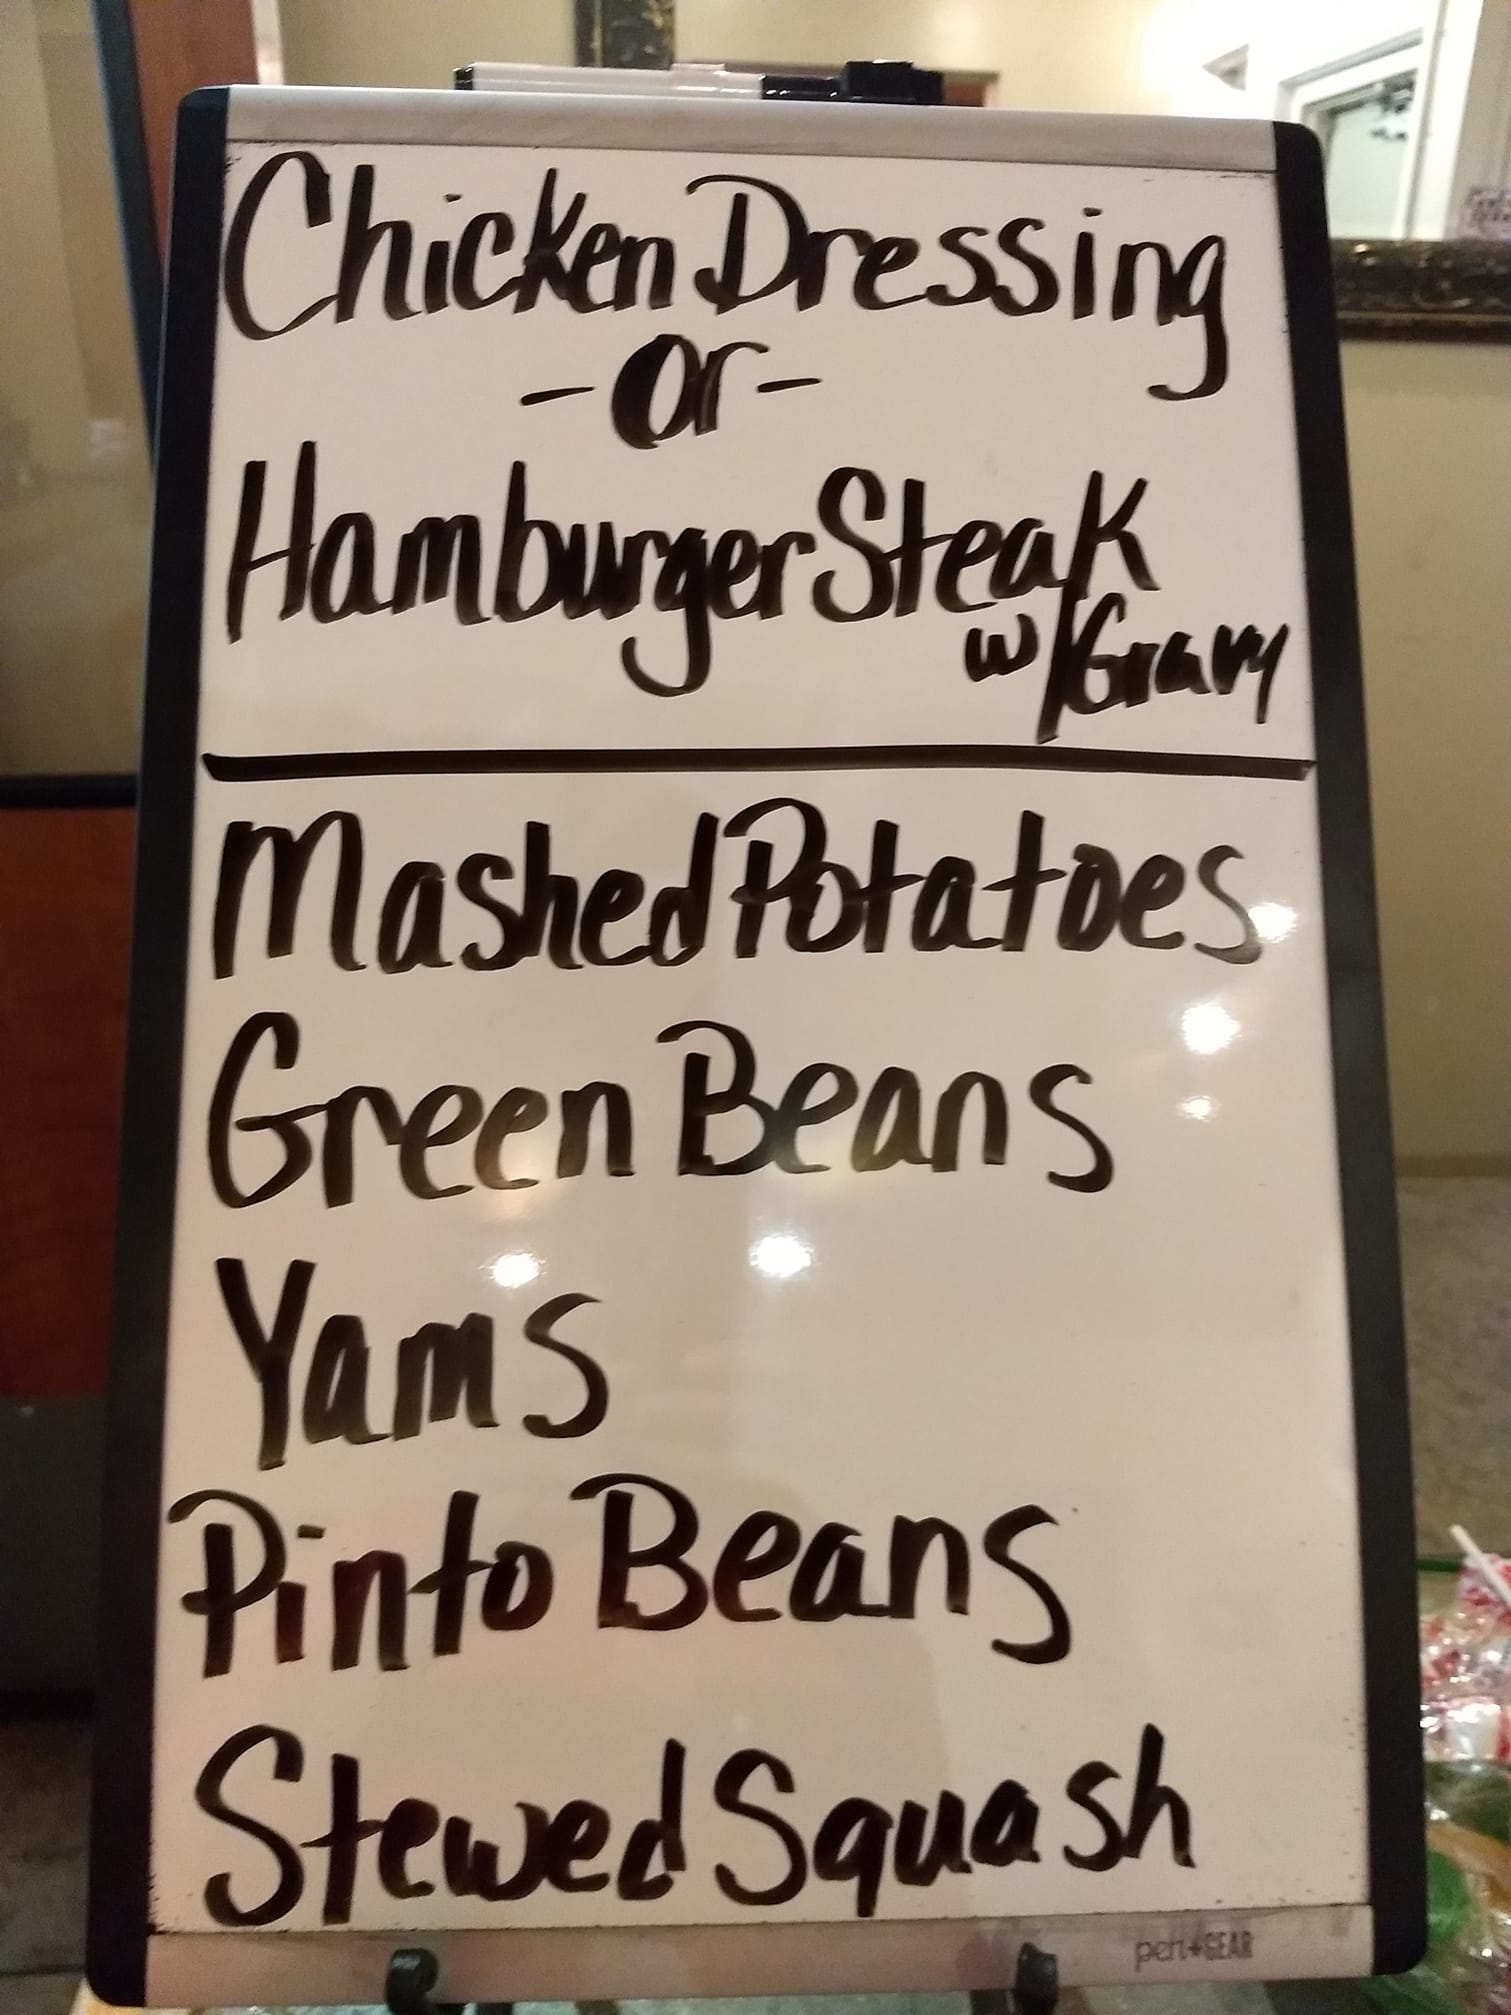 Chicken Dressing
- or -
Hamburger Steak
w/Gravy
Mashed Potatoes
Green Beans
Yams
Pinto Beans
Stewed Squash
pen+GEAR